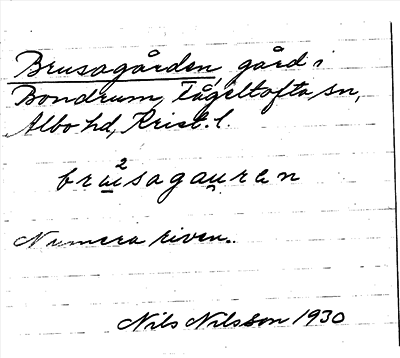 Brusagården, gård i
Bondrum, Fågeltofta sn,
Albo hd, Krist. l.
bru²sagau̯ren
Numera riven.
Nils Nilsson 1930